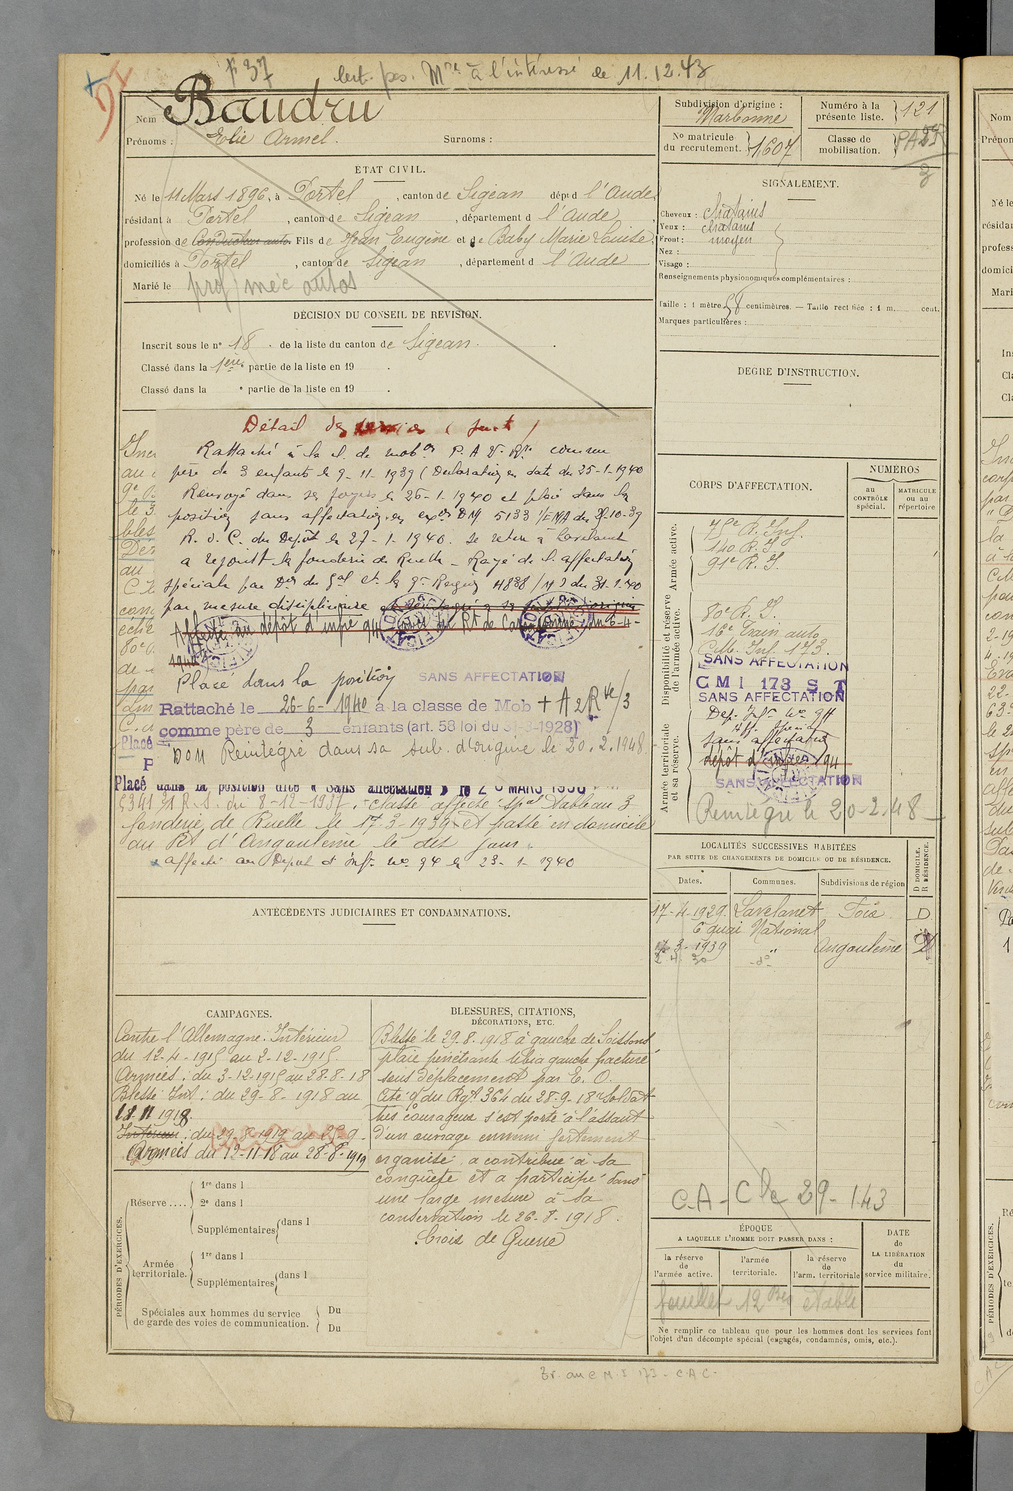 F 37
Cert. pos. Mre à l'intéressé le 11.12.43
Nom Baudru
Prénoms : Elie Armel. Surnoms :
ETAT CIVIL.
Né le 11 Mars 1896, à Portel, canton de Sigean dépt d l'Aude
résidant à Portel, canton de Sigean, département d l'Aude
profession de Conducteur auto. Fils de Jean Eugène et de Baby Marie Louise
domiciliés à Portel, canton de Sigean, département d l'Aude
Marié le
prof/ méc autos
DÉCISION DU CONSEIL DE REVISION.
Inscrit sous le n° 18 de la liste du canton de Sigean.
Classé dans la 1ère partie de la liste en 19 .
Classé dans la e partie de la liste en 19 .
Détail des services (suite)
Rattaché à la cl. de mobon P.A.V.Rte comme
père de 3 enfants le 9-11-1939 (Déclaration en date du 25-1-1940
Renvoyé dans ses foyers le 26-1-1940 et placé dans la
position sans affectation en exon DM 5133 1/EMA du 29-10-39
R.d.C. du Dépôt le 27-1-1940. Se retire à Lavelanet
a rejoint la fonderie de Ruelle - Rayé de l'affectation
spéciale par Don du Gal Ct la 9e Région 4838/ du 31.1.40
par mesure disciplinaire
Affecté au dépôt d'infie 94
1940
Placé dans la position SANS AFFECTATION
Rattaché le 26-6-1940 à la classe de Mob + A 2 Rve/3
comme père de 3 enfants (art. 58 loi du 31-3-1928)
DOM Réintégré dans sa sub. d'origine le 20.2.1948
Placé dans la position dite « Sans affectation » le 20 MARS 1936
5341 31 R.S. du 8-12-1937. Classé affecté spal tableau 3
fonderie de Ruelle le 17-3-1939 et passé en domicile
au Rt d'Angoulême le dit jour.
affecté au Dépôt d'Infie No 94 le 23-1-1940
ANTÉCÉDENTS JUDICIAIRES ET CONDAMNATIONS.
CAMPAGNES.
Contre l'Allemagne: Intérieur
du 12-4-1915 au 2-12-1915.
Armées: du 3-12-1915 au 28-8-18
Blessé Int: du 29-8-1918 au
11.11 1918.
Intérieur: du 29-8-1919 au 25-9-
Armées du 12-11-18 au 28-8-1919
BLESSURES, CITATIONS,
DÉCORATIONS, ETC.
Blessé le 29.8.1918 à gauche de Soissons
plaie pénétrante tibia gauche fracture
sans déplacement par E. O.
Cité O/ du Rgt 364 du 28-9-18 "Soldat
très courageux s'est porté à l'assaut
d'un ouvrage ennemi fortement
organisé, a contribué à sa
conquête et a participé dans
une large mesure à sa
conservation le 26-8-1918.
Croix de Guerre
PÉRIODES D'EXERCICES.
Réserve.... 1re dans l
2e dans l
Supplémentaires dans l
Armée territoriale. 1re dans l
2e dans l
Supplémentaires dans l
Spéciales aux hommes du service Du
de garde des voies de communication. Du
Subdivision d'origine :
Narbonne
Numéro à la présente liste. 121
No matricule du recrutement. 1607
Classe de mobilisation. PAVR
3
SIGNALEMENT.
Cheveux : châtains
Yeux : châtains
Front : moyen
Nez :
Visage :
Renseignements physionomiques complémentaires :
Taille : 1 mètre 58 centimètres. — Taille rectifiée : 1 m. cent.
Marques particulières :
DEGRE D'INSTRUCTION.
CORPS D'AFFECTATION.
NUMÉROS
au CONTRÔLE spécial.
MATRICULE ou au répertoire
Armée active.
140 R.I.
91e R.I.
Disponibilité et réserve de l'armée active.
80e R.I.
16e Train auto
C.M. Inf. 173.
SANS AFFECTATION
CMI 173 S T
SANS AFFECTATION
Armée territoriale et sa réserve.
Dép. Infie No 94
Aff. Spéciale
sans affectation
dépôt d'infie 94
SANS AFFECTATION
Réintégré le 20-2.48
LOCALITÉS SUCCESSIVES HABITÉES
PAR SUITE DE CHANGEMENTS DE DOMICILE OU DE RÉSIDENCE.
Dates. Communes. Subdivisions de région D DOMICILE. R RÉSIDENCE.
17-4-1929. Lavelanet Foix D
6 quai National
17-3-1939 " Angoulême D
-do-
C.A - Cle 29-143
ÉPOQUE
A LAQUELLE L'HOMME DOIT PASSER DANS :
la réserve de l'armée active.
l'armée territoriale.
la réserve de l'arm. territoriale
DATE de LA LIBÉRATION du service militaire.
feuillet 12 bis établi
Ne remplir ce tableau que pour les hommes dont les services font
l'objet d'un décompte spécial (engagés, condamnés, omis, etc.).
Tr. au C M I 173 - C.A.C-